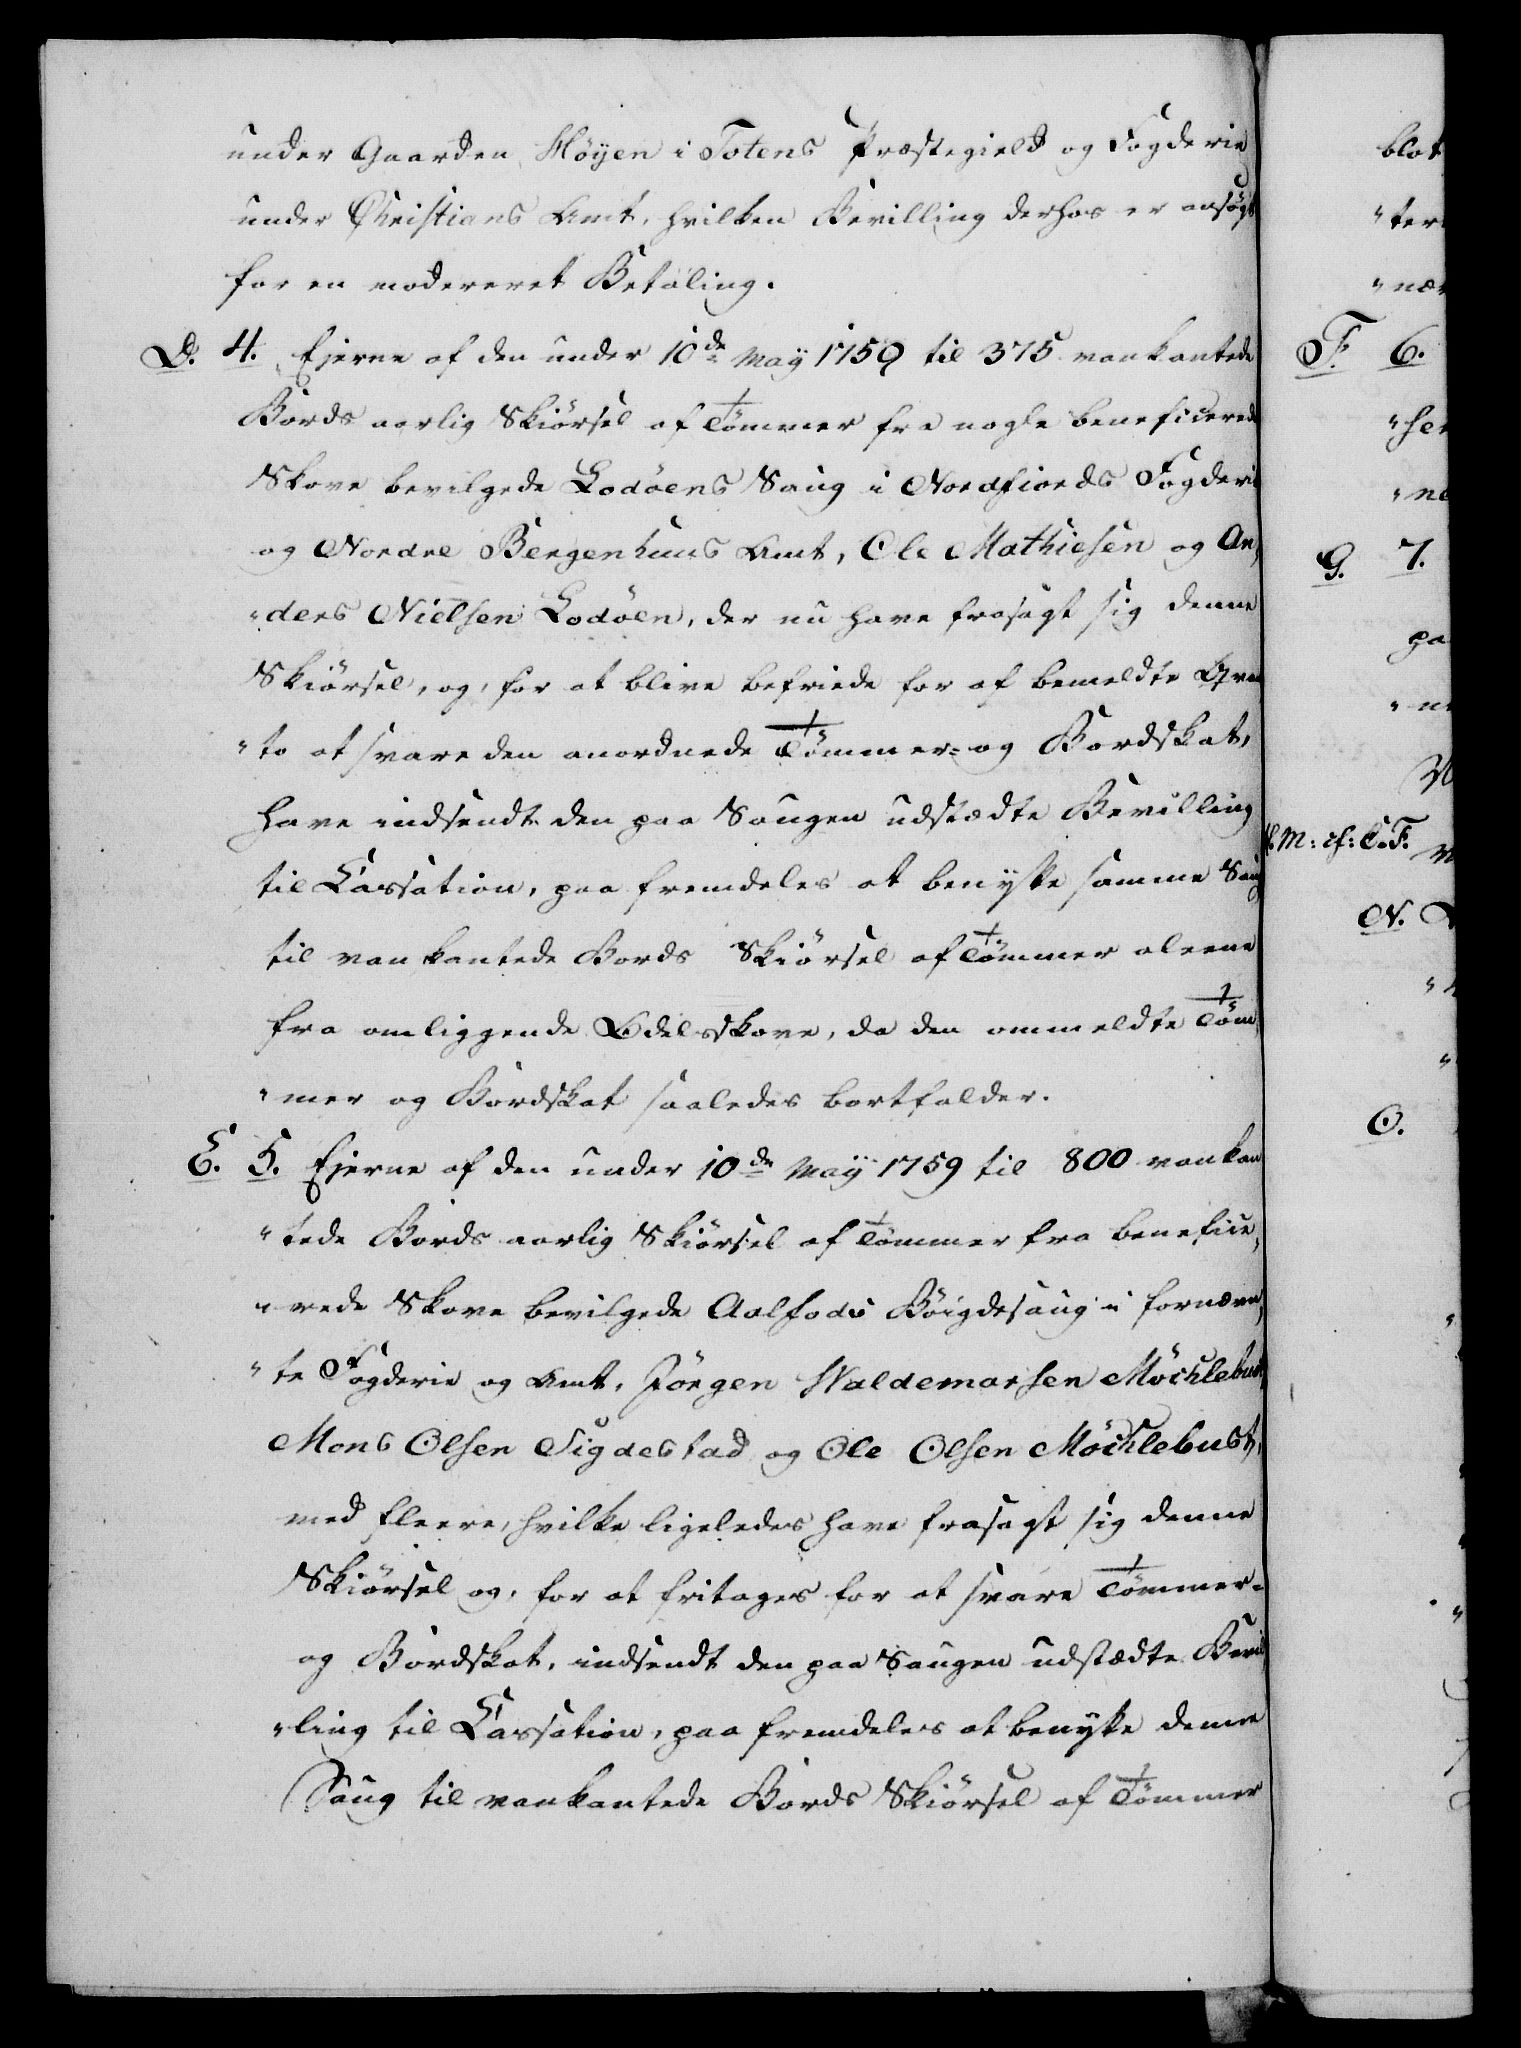 under Gaarden Höyen i Totens Præstegield og Fogderie
under Christians Amt, hvilken Bevilling derhos er ansögt
for en modereret Betaling.
D. 4. Ejerne af den under 10de May 1759 til 375 vankantede
Bords aarlig Skiörsel af Tömmer fra nogle beneficerede
Skove bevilgede Lodöens Saug i Nordfiords Fogderie
og Nordre Bergenhuus Amt, Ole Mathiesen og An,
"ders Nielsen Lodöen, der nu have frasagt sig denne
Skiörsel, og, for at blive befriede for af bemeldte Qvan,
"to at svare den anordnede Tömmer- og Bordskat,
have indsendt den paa Saugen udstædte Bevilling
til Cassation, paa fremdeles at benytte samme Saug
til vankantede Bords Skiörsel af Tömmer aleene
fra omliggende Odelsskove, da den ommeldte Töm,
"mer og Bordskat saaledes bortfalder.
E. 5. Ejerne af den under 10de May 1759 til 800 vankan
"tede Bords aarlig Skiörsel af Tömmer fra benefice,
"rede Skove bevilgede Aalfods Böigdesaug i fornævn,
"te Fogderie og Amt, Jörgen Waldemarsen Möchlebust,
Mons Olsen Sigdestad og Ole Olsen Möchlebust,
med fleere, hvilke ligeledes have frasagt sig denne
Skiörsel og, for at fritages for at svare Tömmer-
og Bordskat, indsendt den paa Saugen udstædte Bevil,
"ling til Cassation, paa fremdeles at benytte denne
Saug til vankantede Bords Skiörsel af Tömmer
blot
"ter
"nær
F. 6.
"ser
"ne
G. 7.
pa
M: cf: C. F.
N.
O.